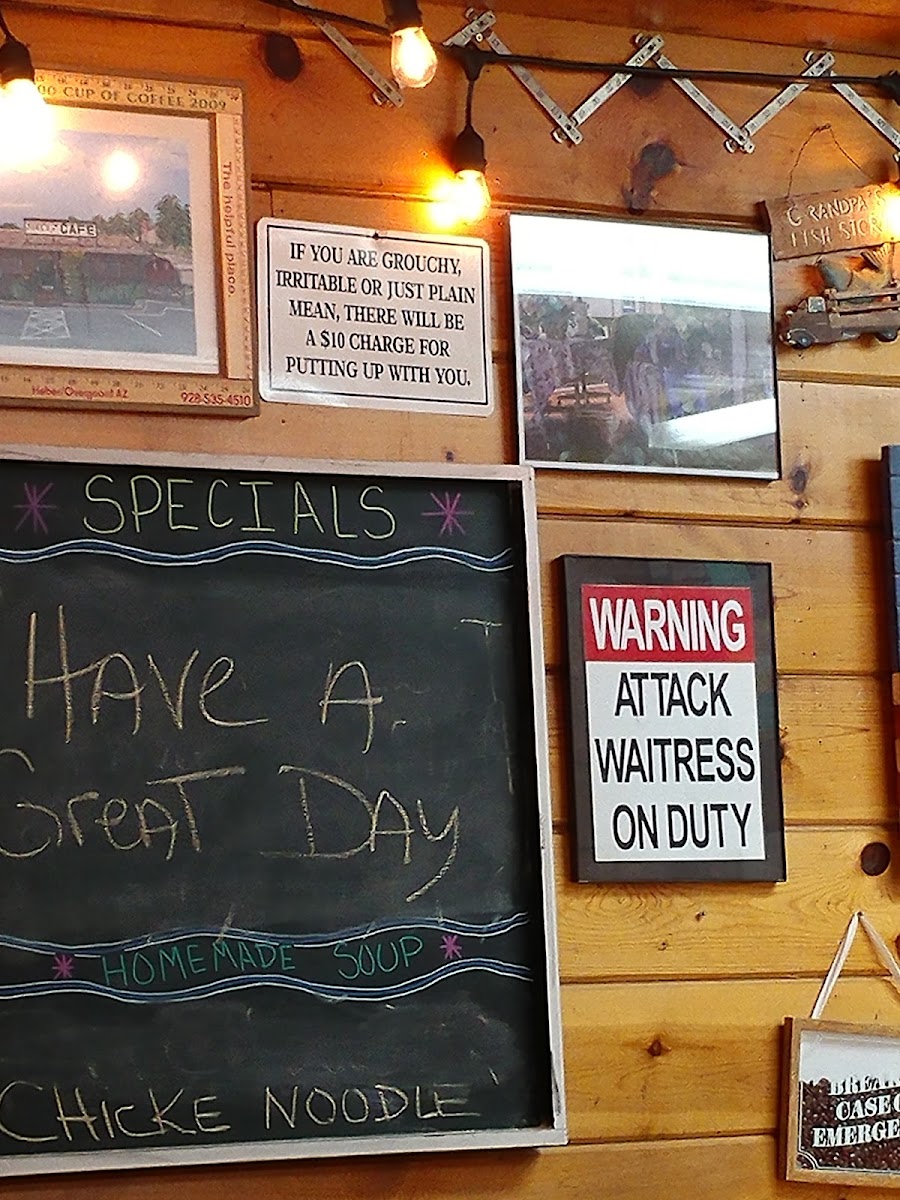 00 CUP OF COFFEE 2009
The helpful place.
CAFE
Heber/Overgaard AZ
928-535-4510
IF YOU ARE GROUCHY,
IRRITABLE OR JUST PLAIN
MEAN, THERE WILL BE
A $10 CHARGE FOR
PUTTING UP WITH YOU.
GRANDPA'S
FISH STOR
SPECIALS
HAVE A
GREAT DAY
HOMEMADE SOUP
CHICKE NOODLE
WARNING
ATTACK
WAITRESS
ON DUTY
BREA
CASE O
EMERGE